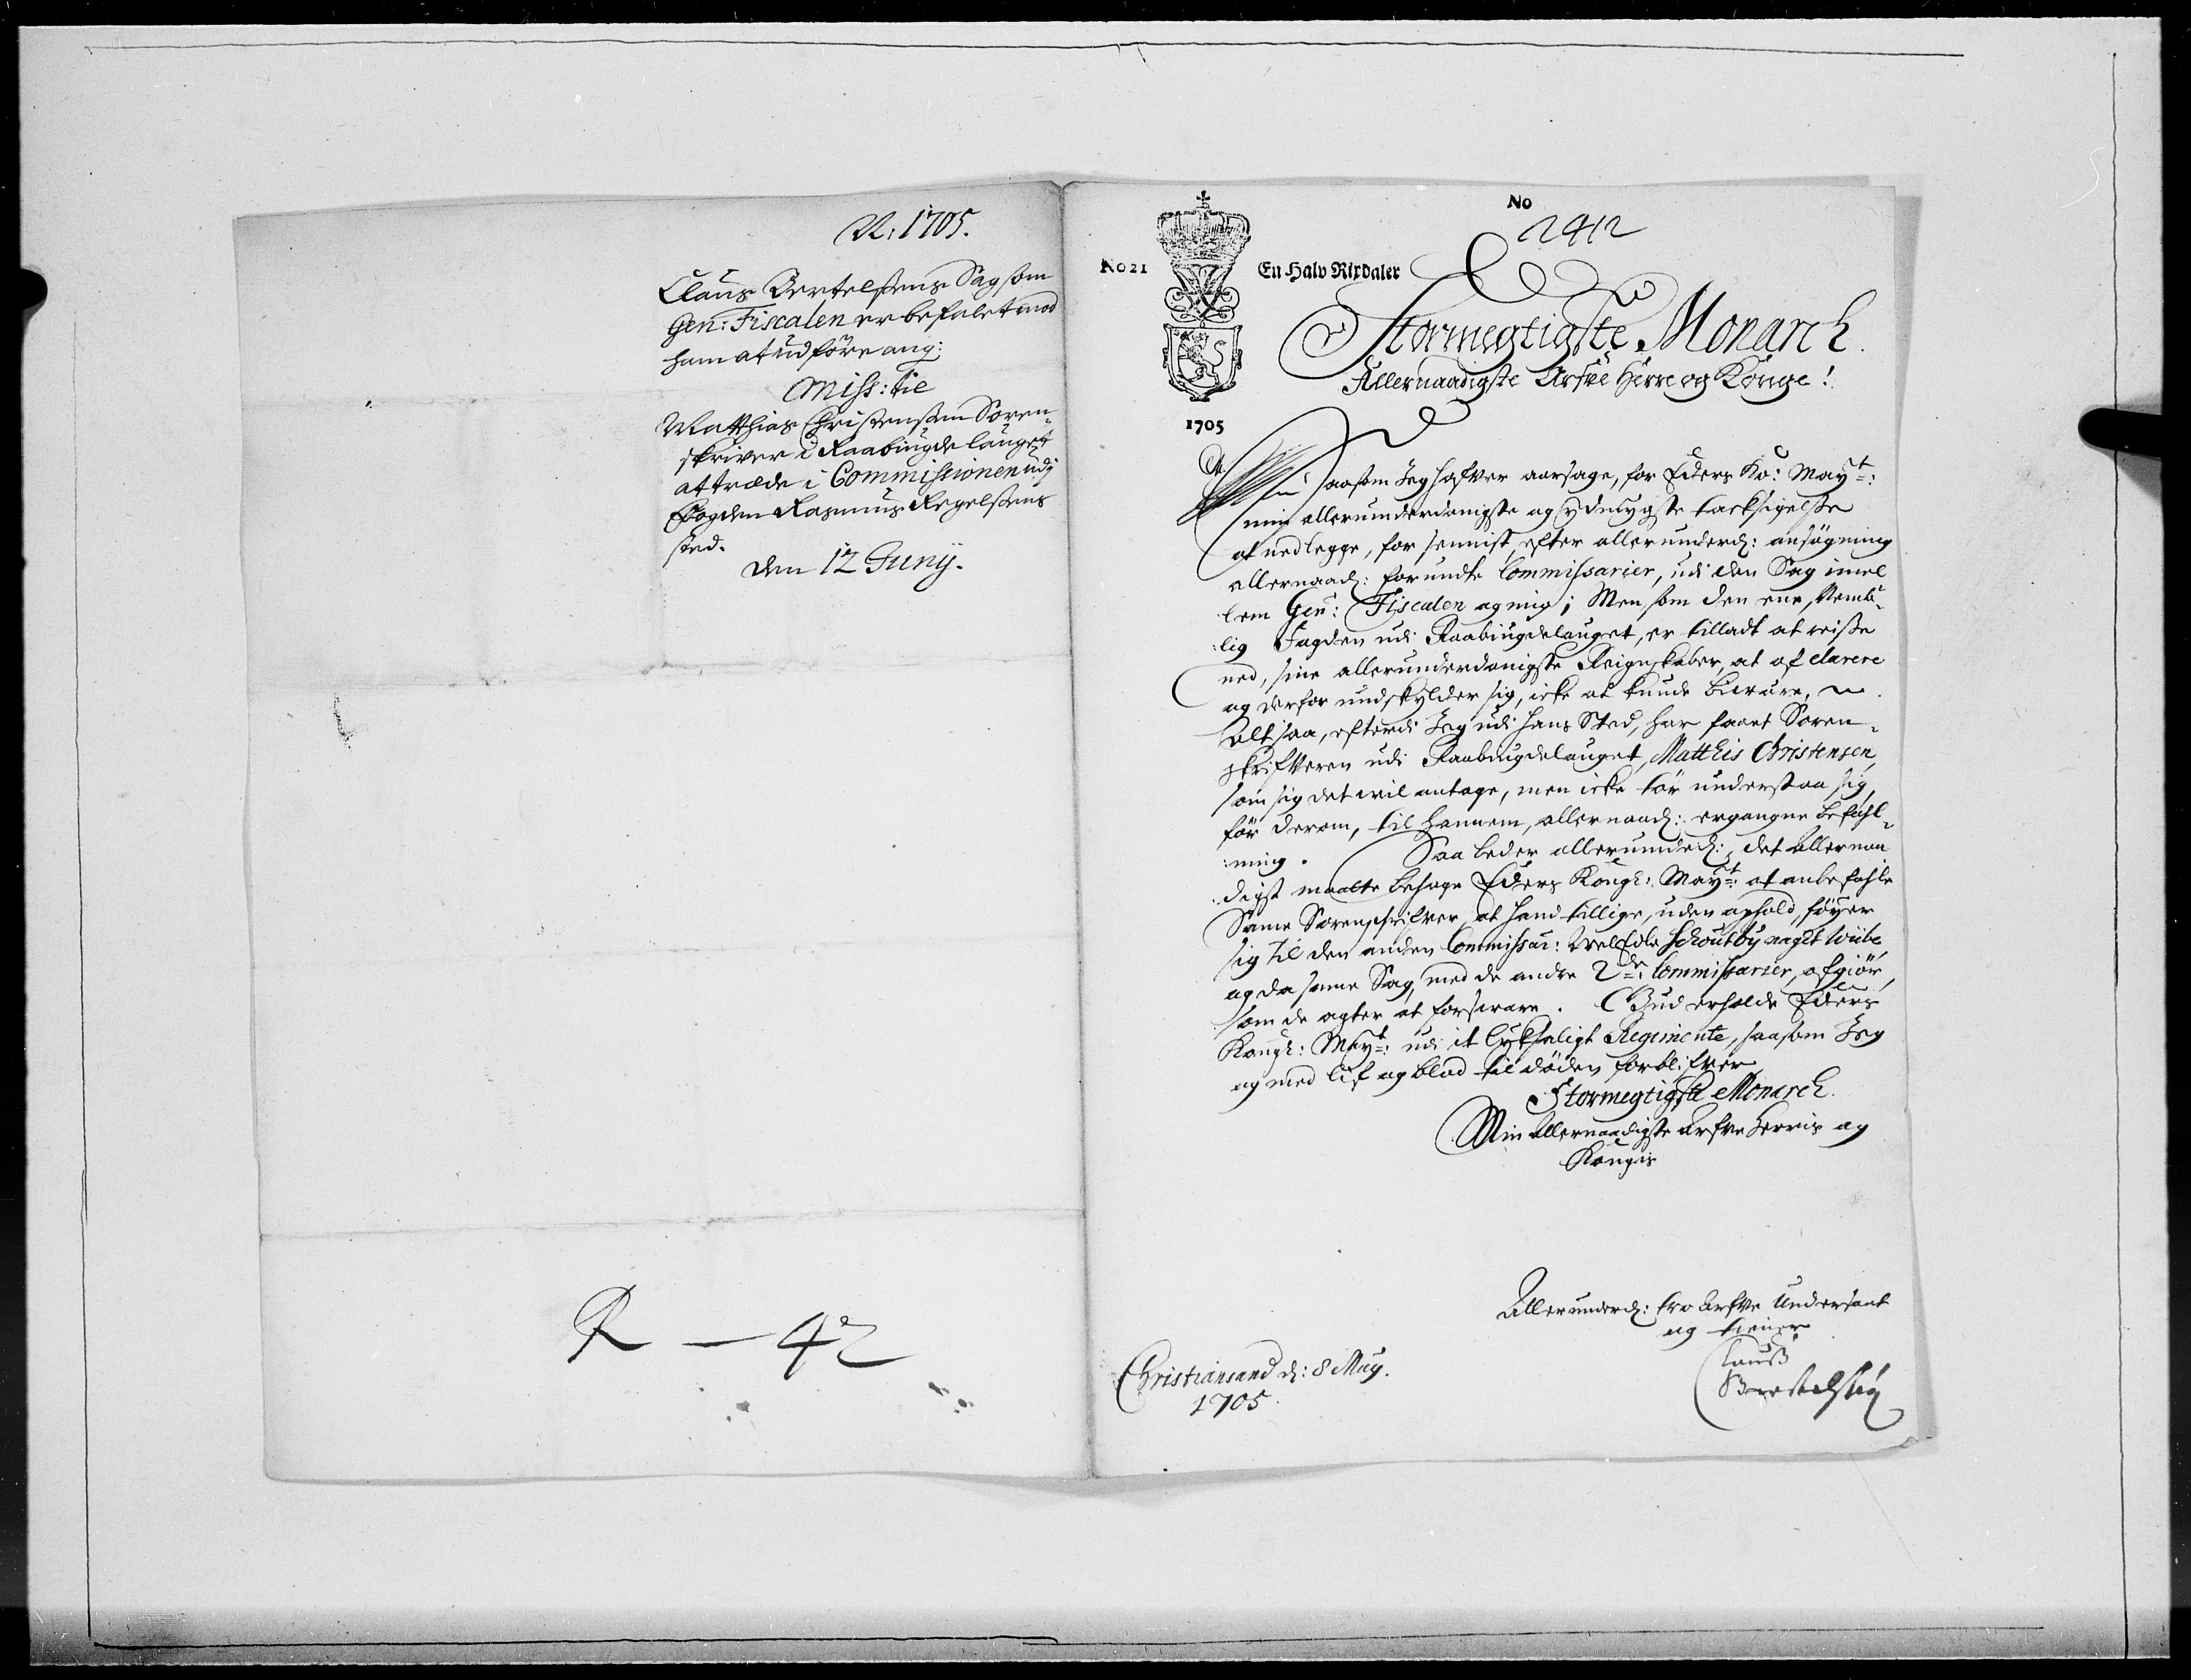 N: 1705.
Claus Bertelsens Sag som
Gen: Fiscalen er befalet mod
ham at udføre ang:
Miss: til
Matthias Christensen Soren-
skriver i Raabÿugdelauget
at træde i Commissionen udj
Fogden Rasmus Regelsens
sted.
den 12 Junÿ.
R — 42
No
2412
No 21
En Halv Rixdaler
Stormegtigste Monarch.
Allernaadigste Arfve Herre og Konge!
1705
Saasom Jeg hafver aarsage, for Eders Ko: Mayt:
min allerunderdanigste og ydmygste tacksigelsse
at nedlegge, for sennist efter allerunderd: ansøgning
allernaad: forundte Commissarier, udi den Sag imel
lem Gen: Fiscalen og mig; Men som den ene, Nemb-
:lig Fogden udi Raabÿugdelauget, er tilladt at reisse
ned, sine allerunderdanigste Reigneskaber, at af clarere
og derfor undskylder sig, icke at kunde bievære,
Altsaa, efterdi Jeg udi hans Sted, har faaet Soren-
skrifveren udi Raabÿugdelauget, Matthis Christensen,
som sig det vil antage, men icke tør understaa sig,
før derom, til hannem, allernaad: ergangne befahl-
:ning. Saa beder allerunderd:, det allernaa
digst maatte behage Eders Kongl: Mayt: at anbefahle
Samme Sorenschrifver, at hand tillige, uden ophold, føyer
sig til den anden Commissar: Velædle Schoutbynaght Wibe,
og da samme Sag, med de andre 2de Commissarier, afgiør,
som de agter at forsvare. Gud erholde Eders
Kongl: Mayt: udi et lycksaligt Regimente, saasom Jeg
og med lif og blod til døden forblifver
Stormegtigste Monarch.
Min Allernaadigste Arfve Herris og
Kongis
Allerunderd: tro Arfve Undersaat
og tiener
Clauss
Bertelsen
Christiansand d: 8 May.
1705.